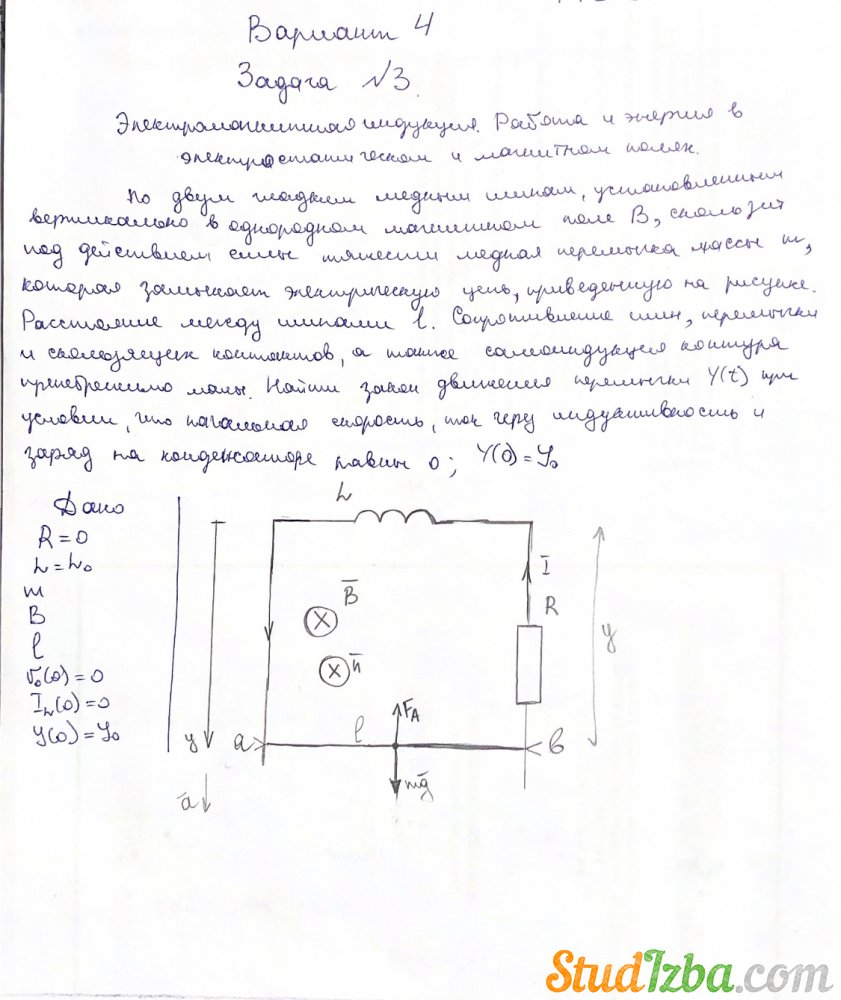 Вариант 4
Задача №3.
Электромагнитная индукция. Работа и энергия в
электростатическом и магнитном полях.
По двум гладким медным шинам, установленным
вертикально в однородном магнитном поле B, скользит
под действием силы тяжести медная перемычка массы m,
которая замыкает электрическую цепь, приведенную на рисунке.
Расстояние между шинами l. Сопротивление шин, перемычки
и скользящих контактов, а также самоиндукция контура
пренебрежимо малы. Найти закон движения перемычки Y(t) при
условии, что начальная скорость, ток через индуктивность и
заряд на конденсаторе равны 0; Y(0) = y₀
Дано
R = 0
L = L₀
m
B
l
v₀(0) = 0
I_L(0) = 0
y(0) = y₀
L
I
B
R
n
y
F_A
y
a
l
b
mg
a
StudIzba.com